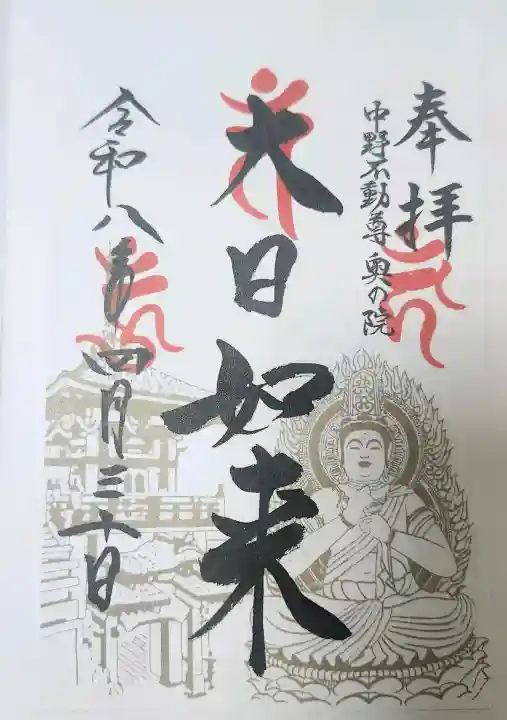 奉拝
中野不動尊 奥の院
大日如来
令和八年四月三十日